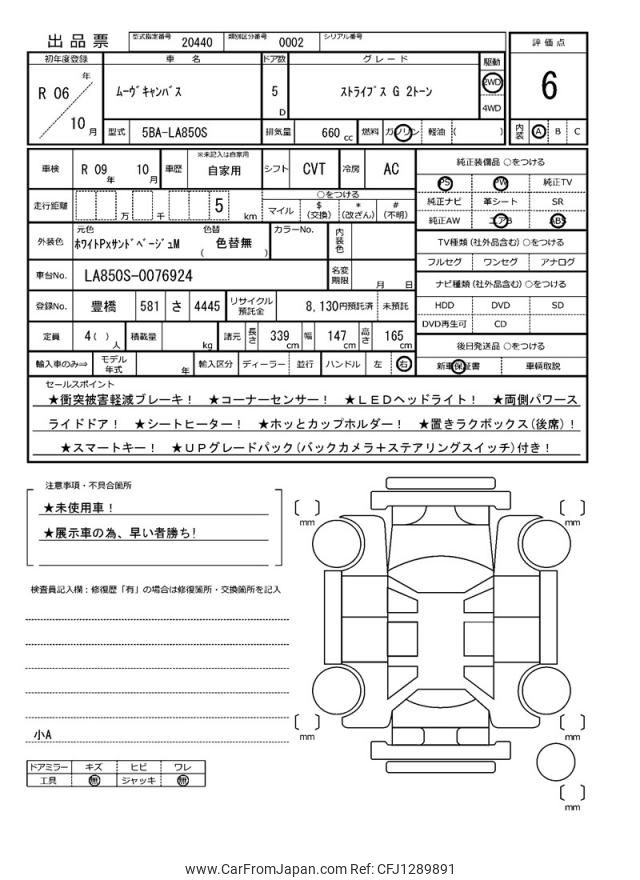 出品票
型式指定番号 20440 類別区分番号 0002 シリアル番号
評価点
6
内装 A B C
初年度登録 車名 ドア数 グレード 駆動
R 06 年 10 月
ムーヴキャンバス
5 D
ストライプス G 2トーン
2WD
4WD
型式 5BA-LA850S 排気量 660 cc 燃料 ガソリン 軽油 ( )
車検 R 09 年 10 月 車歴 ※未記入は自家用 自家用 シフト CVT 冷房 AC
走行距離 万 千 5 km
○をつける
マイル $(交換) *(改ざん) #(不明)
外装色 元色 ホワイトPxサンドベージュM 色替 ( 色替無 ) カラーNo. 内装色
車台No. LA850S-0076924 名変期限 月 日
登録No. 豊橋 581 さ 4445 リサイクル預託金 8,130円預託済 未預託
定員 4( ) 人 積載量 kg 諸元 長さ 339 cm 幅 147 cm 高さ 165 cm
輸入車のみ⇒ モデル年式 年 輸入区分 ディーラー 並行 ハンドル 左 右
純正装備品 ○をつける
PS PW 純正TV
純正ナビ 革シート SR
純正AW エアB ABS
TV種類(社外品含む) ○をつける
フルセグ ワンセグ アナログ
ナビ種類(社外品含む) ○をつける
HDD DVD SD
DVD再生可 CD
後日発送品 ○をつける
新車保証書 車輌取説
セールスポイント
★衝突被害軽減ブレーキ! ★コーナーセンサー! ★LEDヘッドライト! ★両側パワース
ライドドア! ★シートヒーター! ★ホッとカップホルダー! ★置きラクボックス(後席)!
★スマートキー! ★UPグレードパック(バックカメラ+ステアリングスイッチ)付き!
注意事項・不具合箇所
★未使用車!
★展示車の為、早い者勝ち!
検査員記入欄:修復歴「有」の場合は修復箇所・交換箇所を記入
小A
ドアミラー キズ ヒビ ワレ
工具 無 ジャッキ 無
[ ] mm
[ ] mm
[ ] mm
[ ] mm
[ ] mm
www.CarFromJapan.com Ref: CFJ1289891